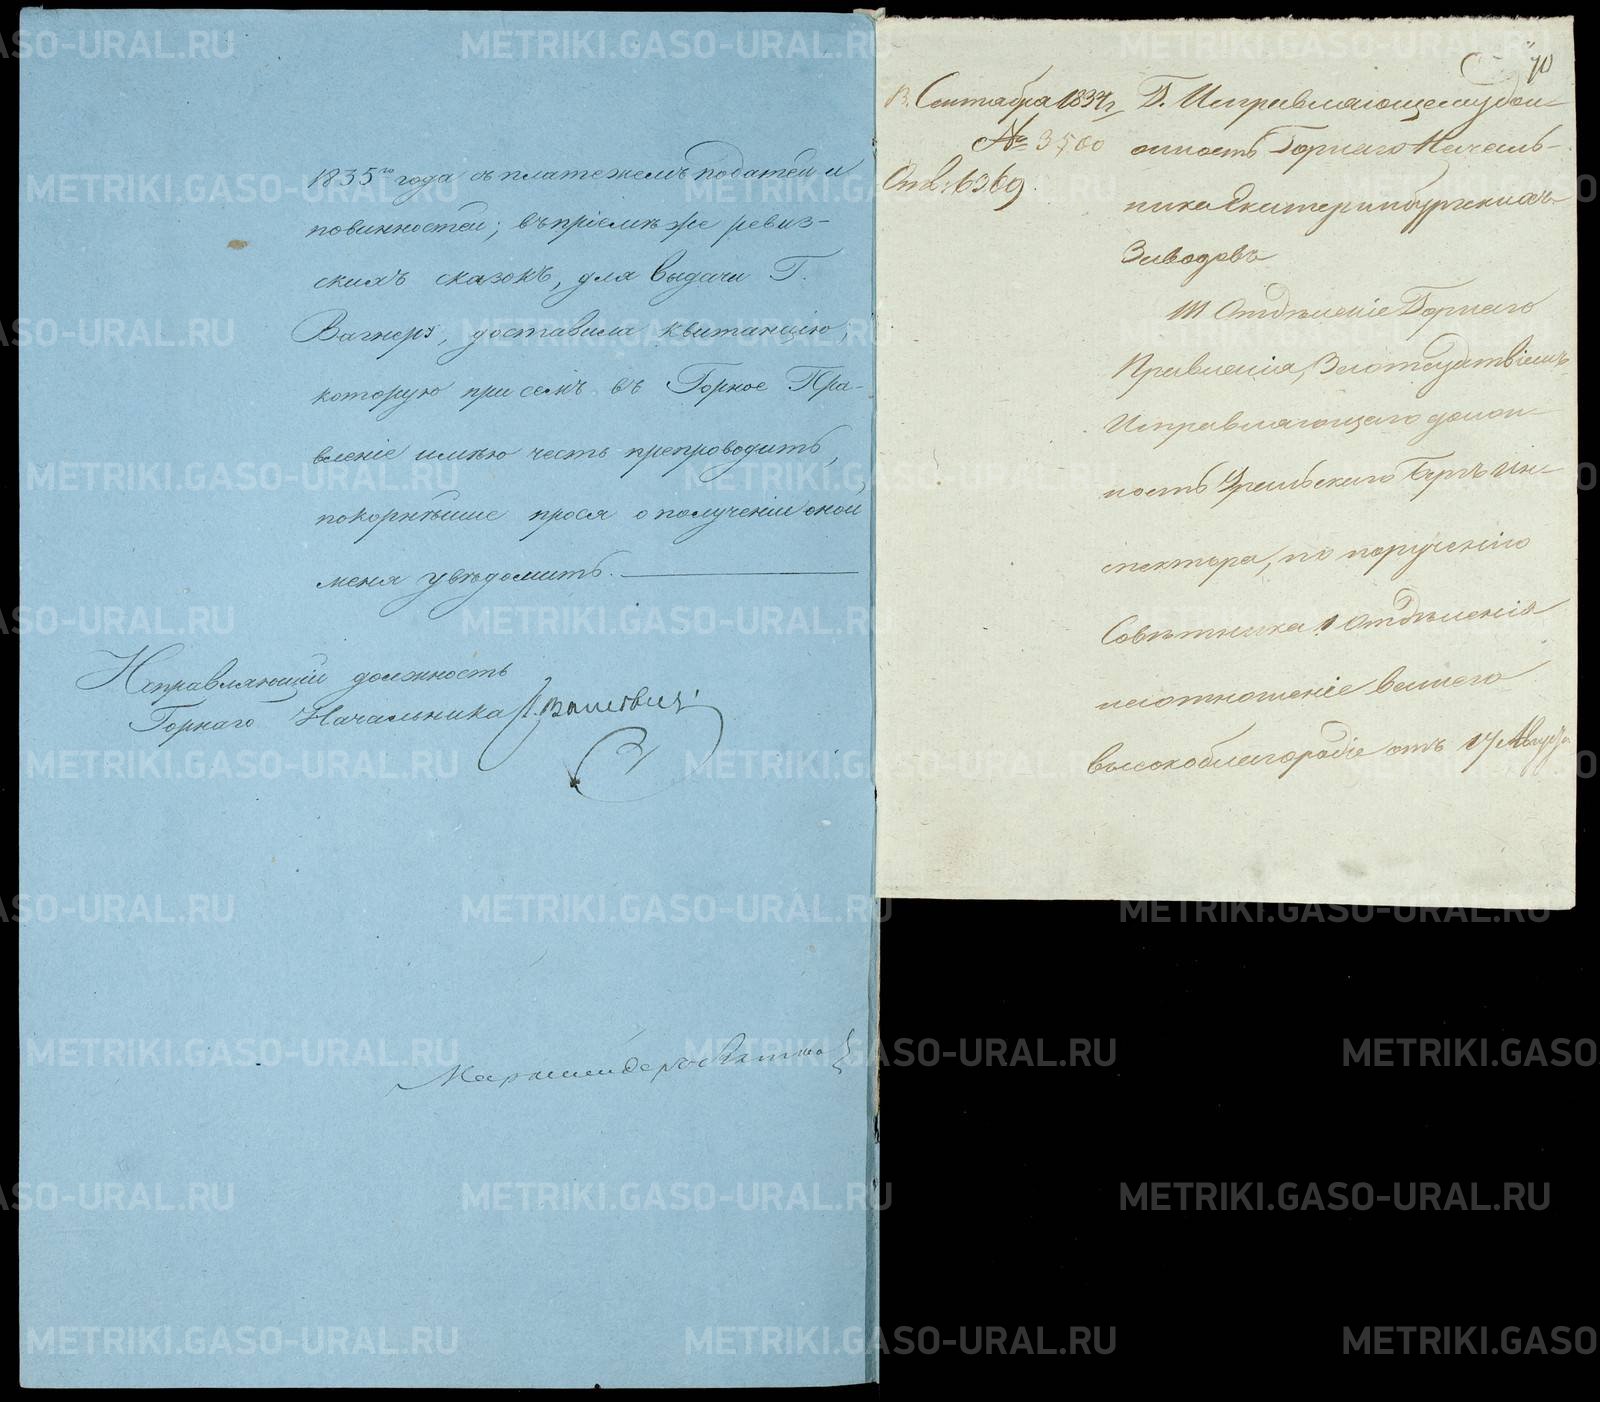 1835го года съ платежемъ податей и
повинностей; въ пріемѣ же ревиз-
скихъ сказокъ, для выдачи Г.
Вагнеру, доставила квитанцію,
которую при семъ въ Горное Пра-
вленіе имѣю честь препроводить,
покорнѣйше прося о полученіи оной
меня увѣдомить.
Исправляющій должность
Горнаго Начальника
Маркшейдеръ
70
13. Сентября 1834 г.
№ 3500
Отв. 6369.
Г. Исправляющему дол-
жность Горнаго Началь-
ника Екатеринбургскихъ
Заводовъ
III Отдѣленіе Горнаго
Правленія, За отсутствіемъ
Исправляющаго долж-
ность Уральскаго Бергъ Ин-
спектора, по порученію
Совѣтника 1 Отдѣленія
на отношеніе вашего
высокоблагородіе отъ 17 Августа
METRIKI.GASO-URAL.RU